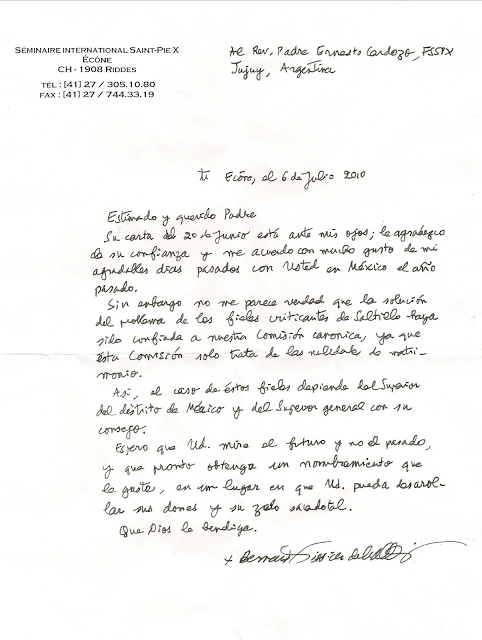 SÉMINAIRE INTERNATIONAL SAINT-PIE X
ÉCÔNE
CH - 1908 RIDDES
TÉL : [41] 27 / 305.10.80
FAX : [41] 27 / 744.33.19
Al Rev. Padre Ernesto Cardozo, FSSPX
Jujuy, Argentina
Ecône, el 6 de Julio 2010
Estimado y querido Padre
Su carta del 20 de Junio está ante mis ojos; le agradezco
de su confianza y me acuerdo con mucho gusto de mi
agradables dias pasados con Usted en México el año
pasado.
Sin enbargo no me parece verdad que la solución
del problema de los fieles criticantes de Saltillo haya
sido confiada a nuestra Comisión canonica, ya que
ésta Comisión solo trata de las nulidades de matri-
monio.
Asi, el caso de éstos fieles depiende del Superior
del distrito de México y del Superior general con su
consejo.
Espero que Ud. mire el futuro y no el pasado,
y que pronto obtenga un nombramiento que
le guste, en un lugar en que Ud. pueda desarol-
lar sus dones y su zelo sacerdotal.
Que Dios le bendiga.
+ Bernard Tissier de Mallerais